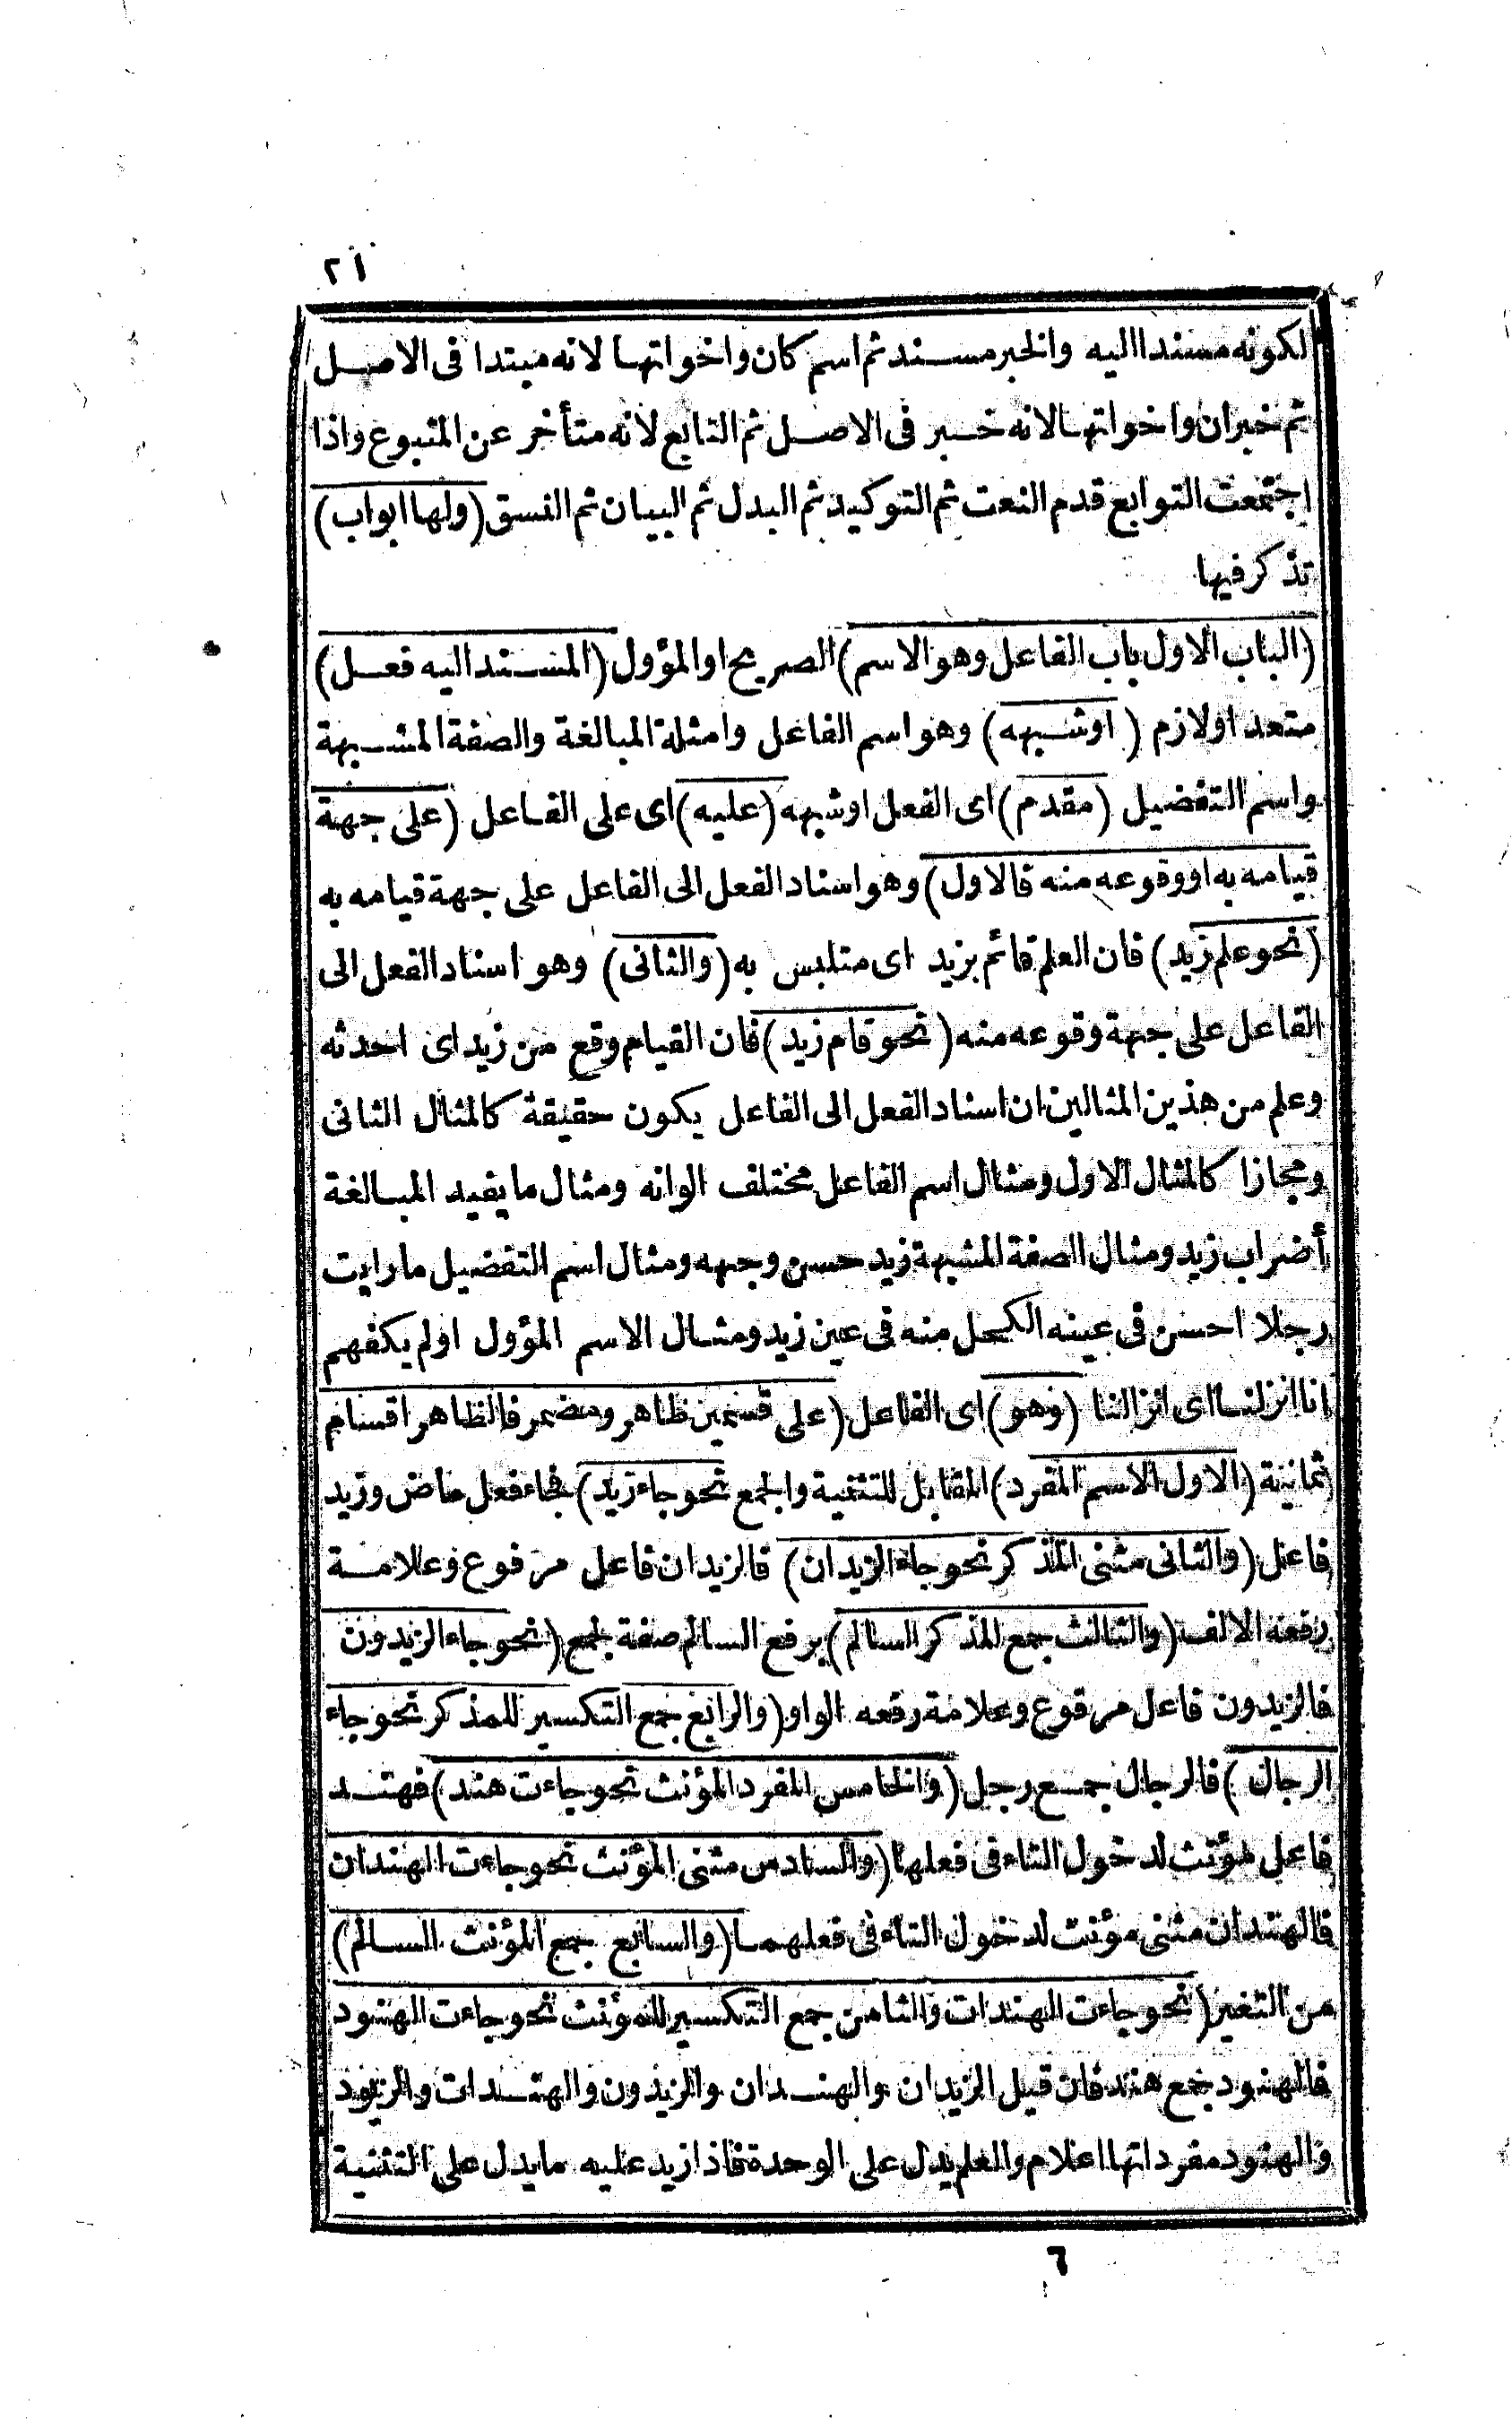 ٢١
لكونه مسندا اليه والخبر مسند ثم اسم كان واخواتها لانه مبتدا فى الاصل
ثم خبران واخواتها لانه خبر فى الاصل ثم التابع لانه متأخر عن المتبوع واذا
اجتمعت التوابع قدم النعت ثم التوكيد ثم البدل ثم البيان ثم النسق (ولها ابواب)
تذكر فيها
(الباب الاول باب الفاعل وهو الاسم) الصريح او المؤول (المسند اليه فعل)
متعد او لازم (اوشبهه) وهو اسم الفاعل وامثلة المبالغة والصفة المشبهة
واسم التفضيل (مقدم) اى الفعل اوشبهه (عليه) اى على الفاعل (على جهة
قيامه به اووقوعه منه فالاول) وهو اسناد الفعل الى الفاعل على جهة قيامه به
(نحو علم زيد) فان العلم قائم بزيد اى متلبس به (والثانى) وهو اسناد الفعل الى
الفاعل على جهة وقوعه منه (نحو قام زيد) فان القيام وقع من زيد اى احدثه
وعلم من هذين المثالين ان اسناد الفعل الى الفاعل يكون حقيقة كالمثال الثانى
ومجازا كالمثال الاول ومثال اسم الفاعل مختلف الوانه ومثال ما يفيد المبالغة
أضراب زيد ومثال الصفة المشبهة زيد حسن وجهه ومثال اسم التفضيل ما رايت
رجلا احسن فى عينه الكحل منه فى عين زيد ومثال الاسم المؤول اولم يكفهم
انا انزلنا اى انزالنا (وهو) اى الفاعل (على قسمين ظاهر ومضمر فالظاهر اقسام
ثمانية (الاول الاسم المفرد) المقابل للتثنية والجمع نحو جاء زيد) فجاء فعل ماض وزيد
فاعل (والثانى مثنى المذكر نحو جاء الزيدان) فالزيدان فاعل مرفوع وعلامة
رفعه الالف (والثالث جمع المذكر السالم) برفع السالم صفة لجمع (نحو جاء الزيدون
فالزيدون فاعل مرفوع وعلامة رفعه الواو (والرابع جمع التكسير للمذكر نحو جاء
الرجال) فالرجال جمع رجل (والخامس المفرد المؤنث نحو جاءت هند) فهند
فاعل مؤنث لدخول التاء فى فعلها (والسادس مثنى المؤنث نحو جاءت الهندان
فالهندان مثنى مؤنث لدخول التاء فى فعلهما (والسابع جمع المؤنث السالم)
من التغير (نحو جاءت الهندات والثامن جمع التكسير للمؤنث نحو جاءت الهنود
فالهنود جمع هند فان قيل الزيدان والهندان والزيدون والهندات والزيود
والهنود مفرداتها اعلام والعلم يدل على الوحدة فاذا زيد عليه مايدل على التثنية
٦